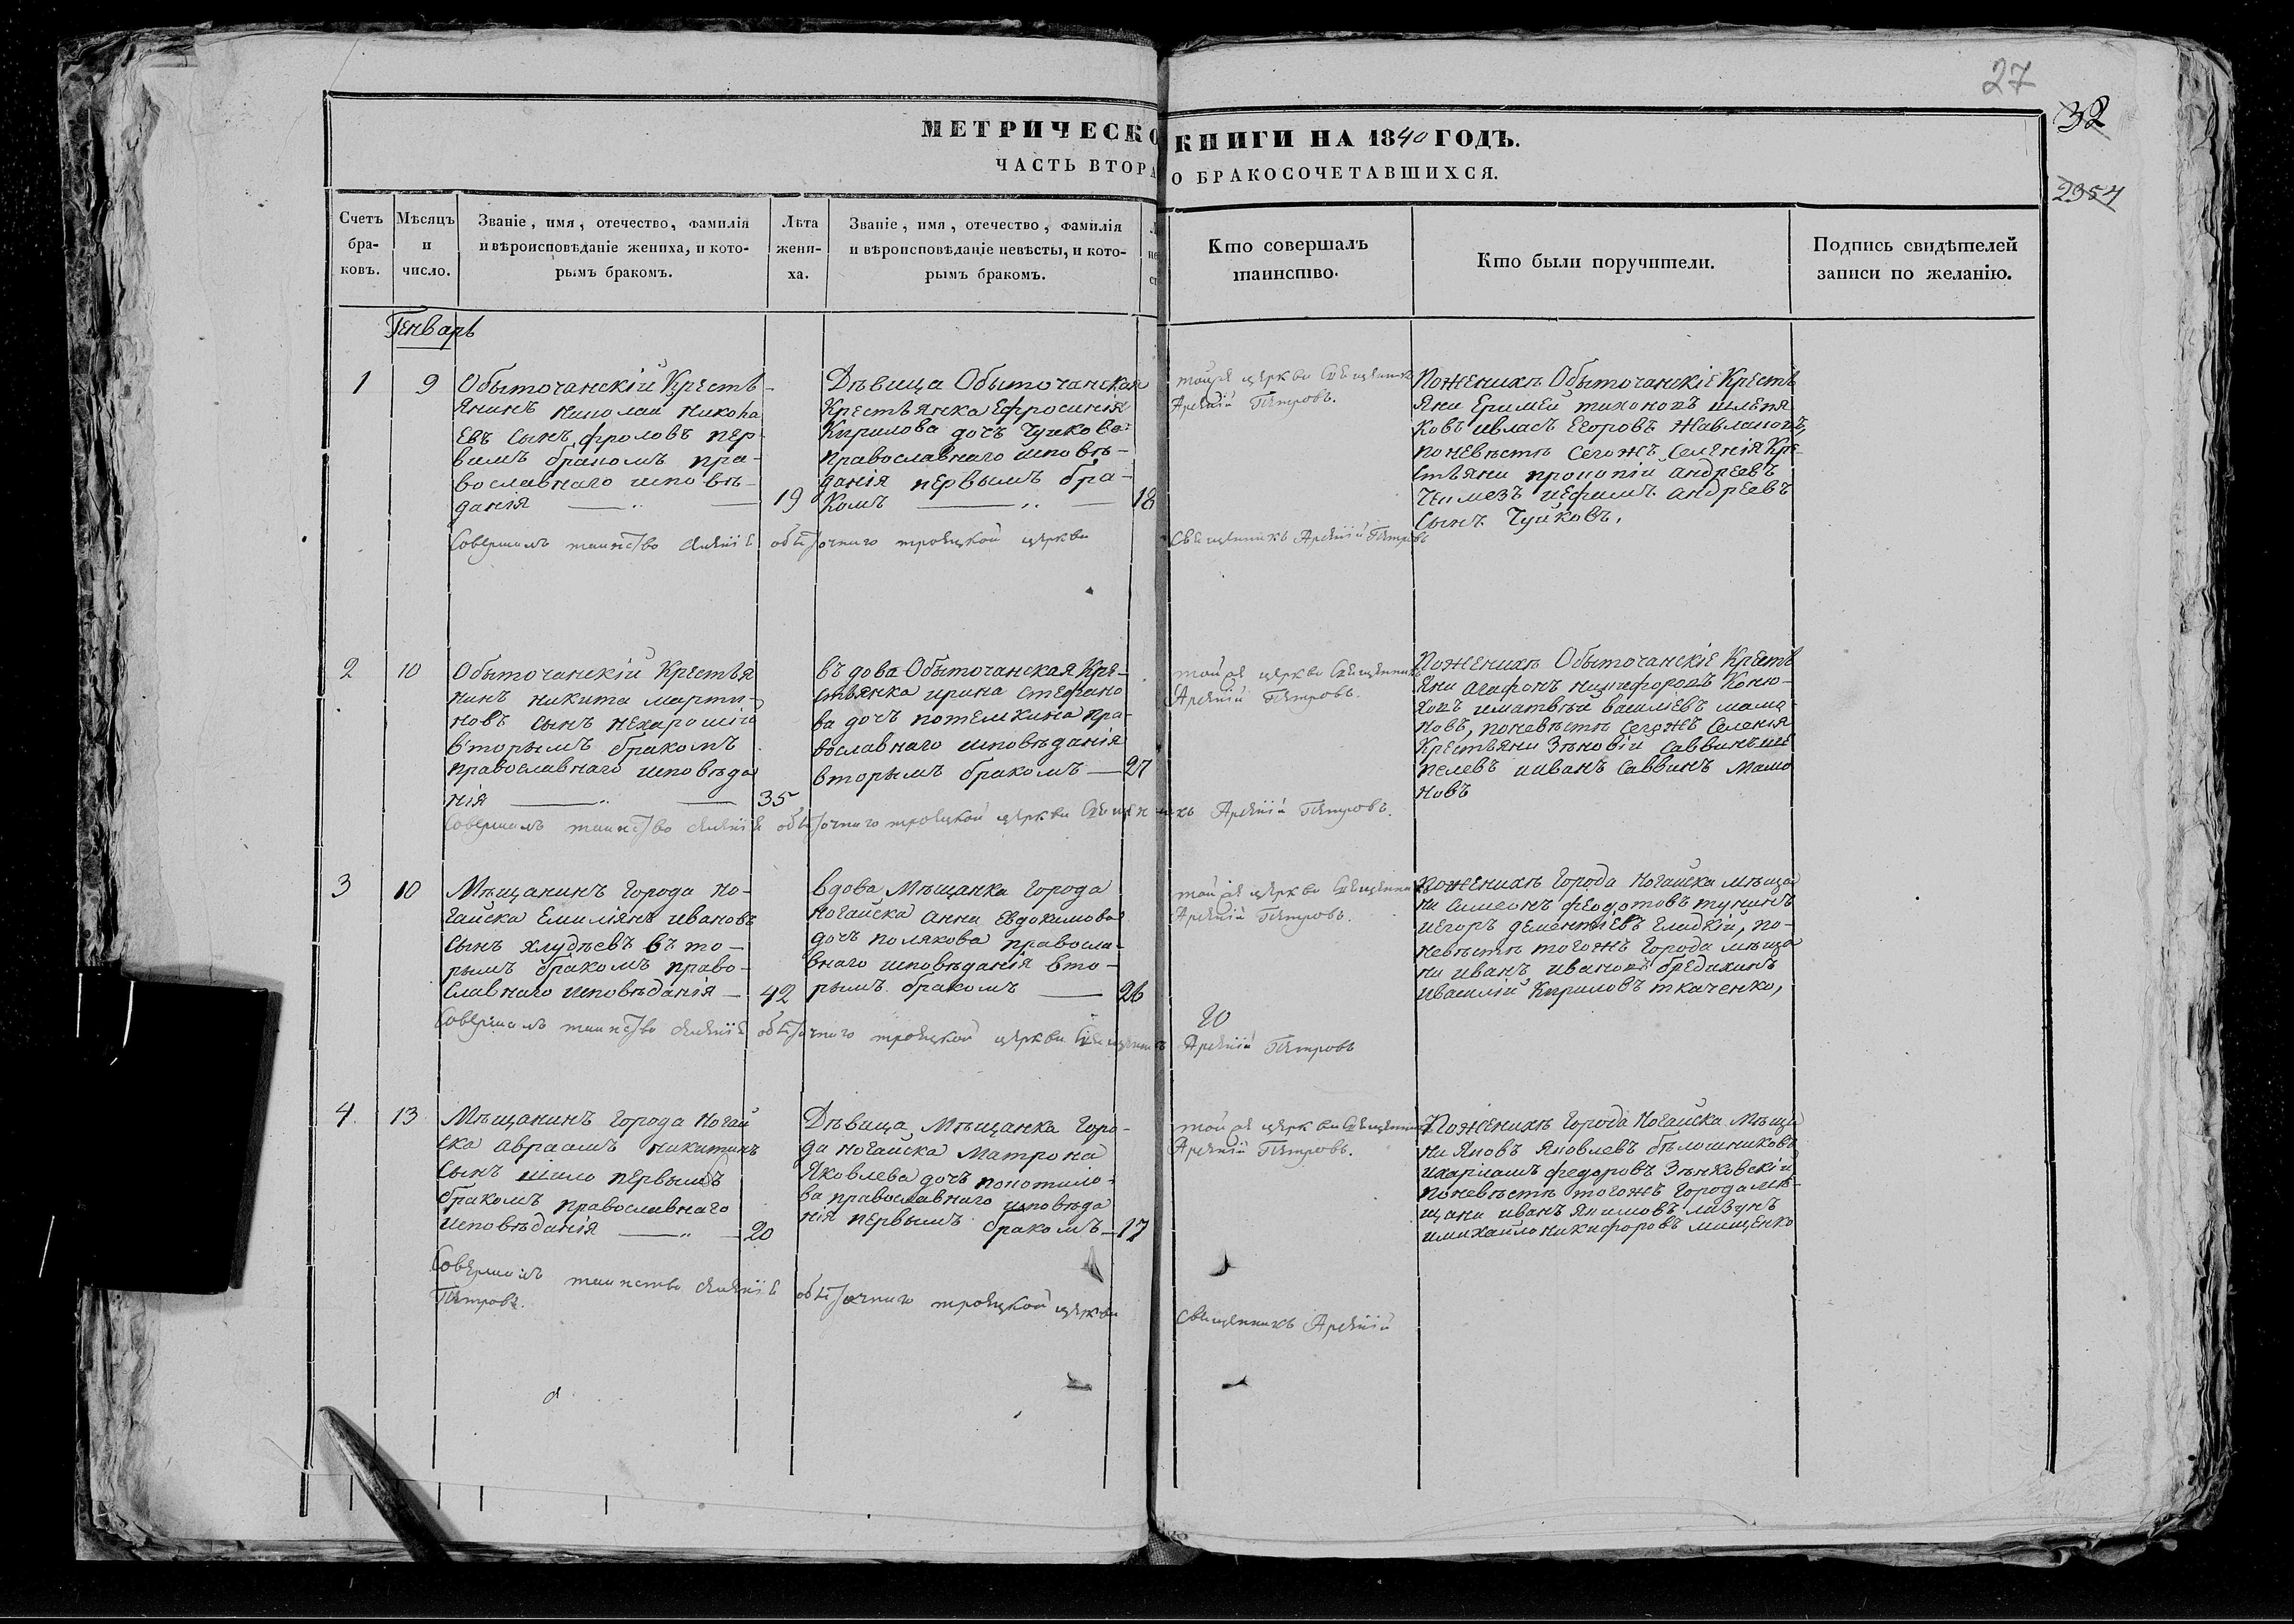 27
32
2354
МЕТРИЧЕСКО КНИГИ НА 1840 ГОДЪ.
ЧАСТЬ ВТОРА О БРАКОСОЧЕТАВШИХСЯ.
Счетъ
бра-
ковъ.
Мѣсяцъ
и
число.
Званіе, имя, отечество, фамилія
и вѣроисповѣданіе жениха, и кото-
рымъ бракомъ.
Лѣта
жени-
ха.
Званіе, имя, отечество, фамилія
и вѣроисповѣданіе невѣсты, и кото-
рымъ бракомъ.
Кто совершалъ
таинство.
Кто были поручители.
Подпись свидѣтелей
записи по желанію.
Генварь
1
9
Обыточанскій Кресть-
янинъ Николай Никола
евъ сынъ фроловъ пер-
вымъ бракомъ пра-
вославнаго исповѣ-
данія
19
Дѣвица Обыточанская
Крестьянка Ефросинія
Кирилова дочъ Чуйкова
православнаго исповѣ-
данія первымъ бра-
комъ
18
той же церкви Священникъ
Арсеній Петровъ.
Пожених Обыточанскіе Кресть
яни Еримей тихоновъ
ковъ ивласъ Егоровъ
поневѣстѣ сегожъ селенія Кре-
стьяни прокопій андреевъ
иефимъ андреевъ
сынъ Чуйковъ,
Совершалъ таинство селенія обыточнаго троецкой церкви
Священникъ Арсеній Петровъ
2
10
Обыточанскій Крестья
нинъ никита марти-
новъ сынъ нехарошій
вторымъ бракомъ
православнаго исповѣда
нія
35
въдова Обыточанская Кре-
стьянка ирина стефано
ва дочъ потемкина пра-
вославнаго исповѣданія
вторымъ бракомъ
27
той же церкви Священникъ
Арсеній Петровъ.
Пожениху Обыточанскіе Кресть
яни агафонъ никифоровъ Коню-
ховъ иматвѣй василіевъ мама-
новъ, поневѣстѣ сегожъ селенія
Крестьяни Зѣновій саввинъ ше
пелевъ ииванъ саввинъ мамо
новъ
Совершалъ таинство селенія обыточнаго троецкой церкви Священникъ Арсеній Петровъ.
3
10
Мѣщанинъ города но-
гайска Емиліянъ ивановъ
сынъ хлудѣевъ вто-
рымъ бракомъ право-
славнаго исповѣданія
42
вдова Мѣщанка города
ногайска анна Евдокимова
дочъ полякова правосла-
внаго исповѣданія вто-
рымъ бракомъ
26
той же церкви Священникъ
Арсеній Петровъ.
Пожениху города ногайска мѣща
ни симеонъ феодотовъ тунинъ
иегоръ дементіевъ гладкій, по-
невѣстѣ тогожъ города мѣща
ни иванъ ивановъ бредихинъ
ивасилій Кириловъ ткаченко,
20
Совершалъ таинство селенія обыточнаго троецкой церкви Священникъ Арсеній Петровъ
4
13
Мѣщанинъ города Ногай
ска авраамъ никитинъ
сынъ шило первымъ
бракомъ православнаго
исповѣданія
20
Дѣвица Мѣщанка горо-
да ногайска Матрона
Яковлева дочъ
ва православнаго исповѣда
нія первымъ бракомъ
17
той же церкви Священникъ
Арсеній Петровъ.
Пожениху города Ногайска Мѣща
ни Яковъ Яковлевъ бѣлошниковъ
ихаріламъ федоровъ Зѣнковскій
поневѣстѣ тогожъ города мѣ-
щани иванъ якимовъ лизунъ
имихайло никифоровъ мищенко
Совершалъ таинство селенія обыточнаго троецкой церкви Священникъ Арсеній
Петровъ.